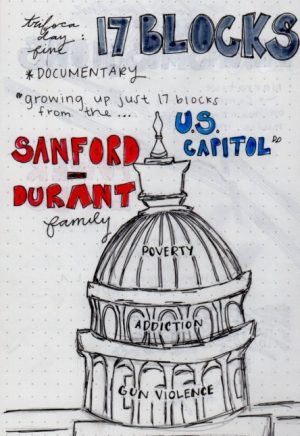 tribeca
day
five :
17 BLOCKS
*DOCUMENTARY
"growing up just 17 blocks
from the ...
U.S.
CAPITOL"
SANFORD
-
DURANT
family
POVERTY
ADDICTION
GUN VIOLENCE